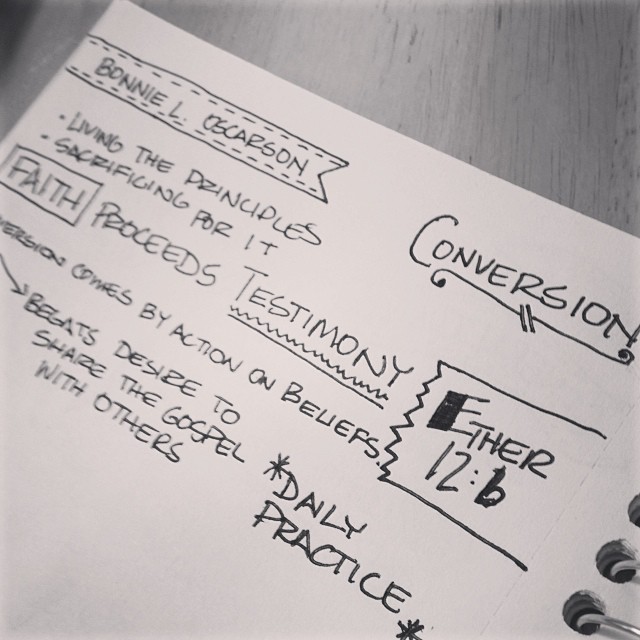 BONNIE L. OSCARSON
CONVERSION
• LIVING THE PRINCIPLES
• SACRIFICING FOR IT
FAITH PROCEEDS TESTIMONY
COMES BY ACTION ON BELIEFS.
BEGATS DESIRE TO
SHARE THE GOSPEL
WITH OTHERS
ETHER
12:6
*DAILY
PRACTICE*